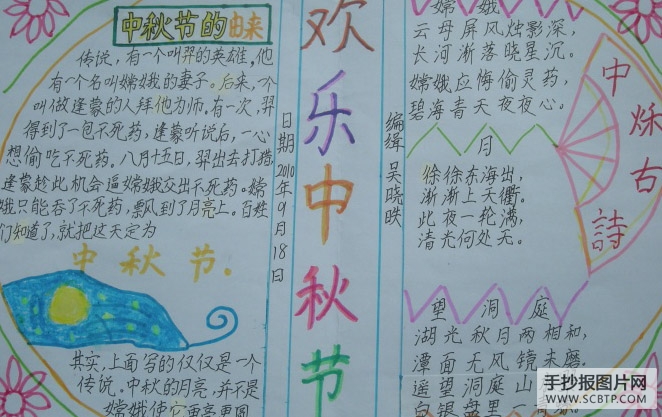 中秋节的由来
传说,有一个叫羿的英雄,他
有一个名叫嫦娥的妻子。后来,一个
叫做逢蒙的人拜他为师。有一次,羿
得到了一包不死药,逢蒙听说后,一心
想偷吃不死药。八月十五日,羿出去打猎,
逢蒙趁此机会逼嫦娥交出不死药。嫦
娥只能吞了不死药,飘风到了月亮上。百姓
们知道了,就把这天定为
中秋节.
其实,上面写的仅仅是一个
传说。中秋的月亮,并不是
嫦娥使它更亮更圆
日期2010年9月18日
欢乐中秋节
编缉 吴晓昳
嫦娥
云母屏风烛影深,
长河渐落晓星沉。
嫦娥应悔偷灵药,
碧海青天夜夜心。
月
徐徐东海出,
渐渐上天衢。
此夜一轮满,
清光何处无。
望洞庭
湖光秋月两相和,
潭面无风镜未磨。
遥望洞庭山
白银盘里一
中秋古詩
手抄报图片网
WWW.SCBTP.COM